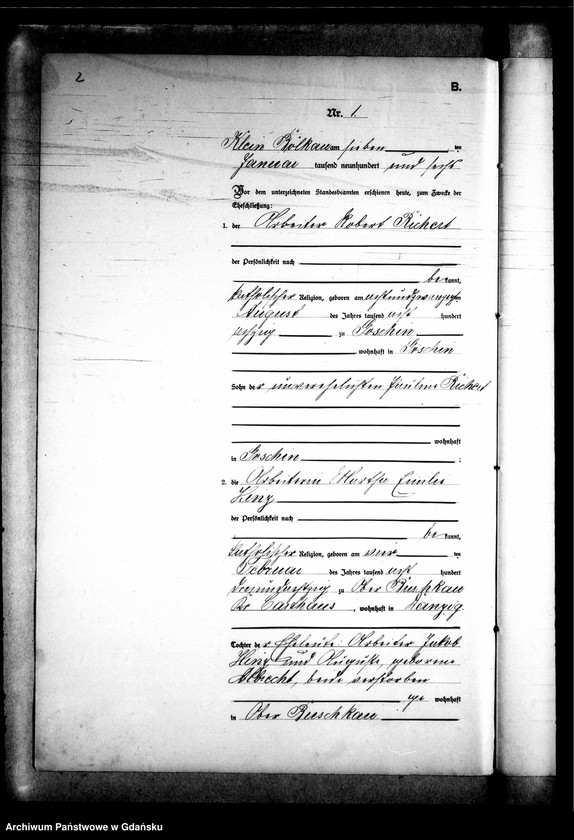 2
B.
Nr. 1
Klein Bölkau am sieben ten
Januar tausend neunhundert und sechs
Vor dem unterzeichneten Standesbeamten erschienen heute, zum Zwecke der
Eheschließung:
1. der Arbeiter Robert Richert
der Persönlichkeit nach
be kannt,
katholischer Religion, geboren am achtundzwanzigsten
August des Jahres tausend acht hundert
achtzig zu Goschin
wohnhaft in Goschin
Sohn der unverehelichten Pauline Richert
wohnhaft
in Goschin ;
2. die Arbeiterin Martha Emilie
Heinz
der Persönlichkeit nach
be kannt,
katholischer Religion, geboren am vier ten
Februar des Jahres tausend acht hundert
dreiundachtzig zu Ober Buschkau
Kr Carthaus, wohnhaft in Danzig.
Tochter der Eheleute: Arbeiter Jakob
Heinz und Auguste, geborene
Albrecht, beide verstorben
wohnhaft
in Ober Buschkau
Archiwum Państwowe w Gdańsku